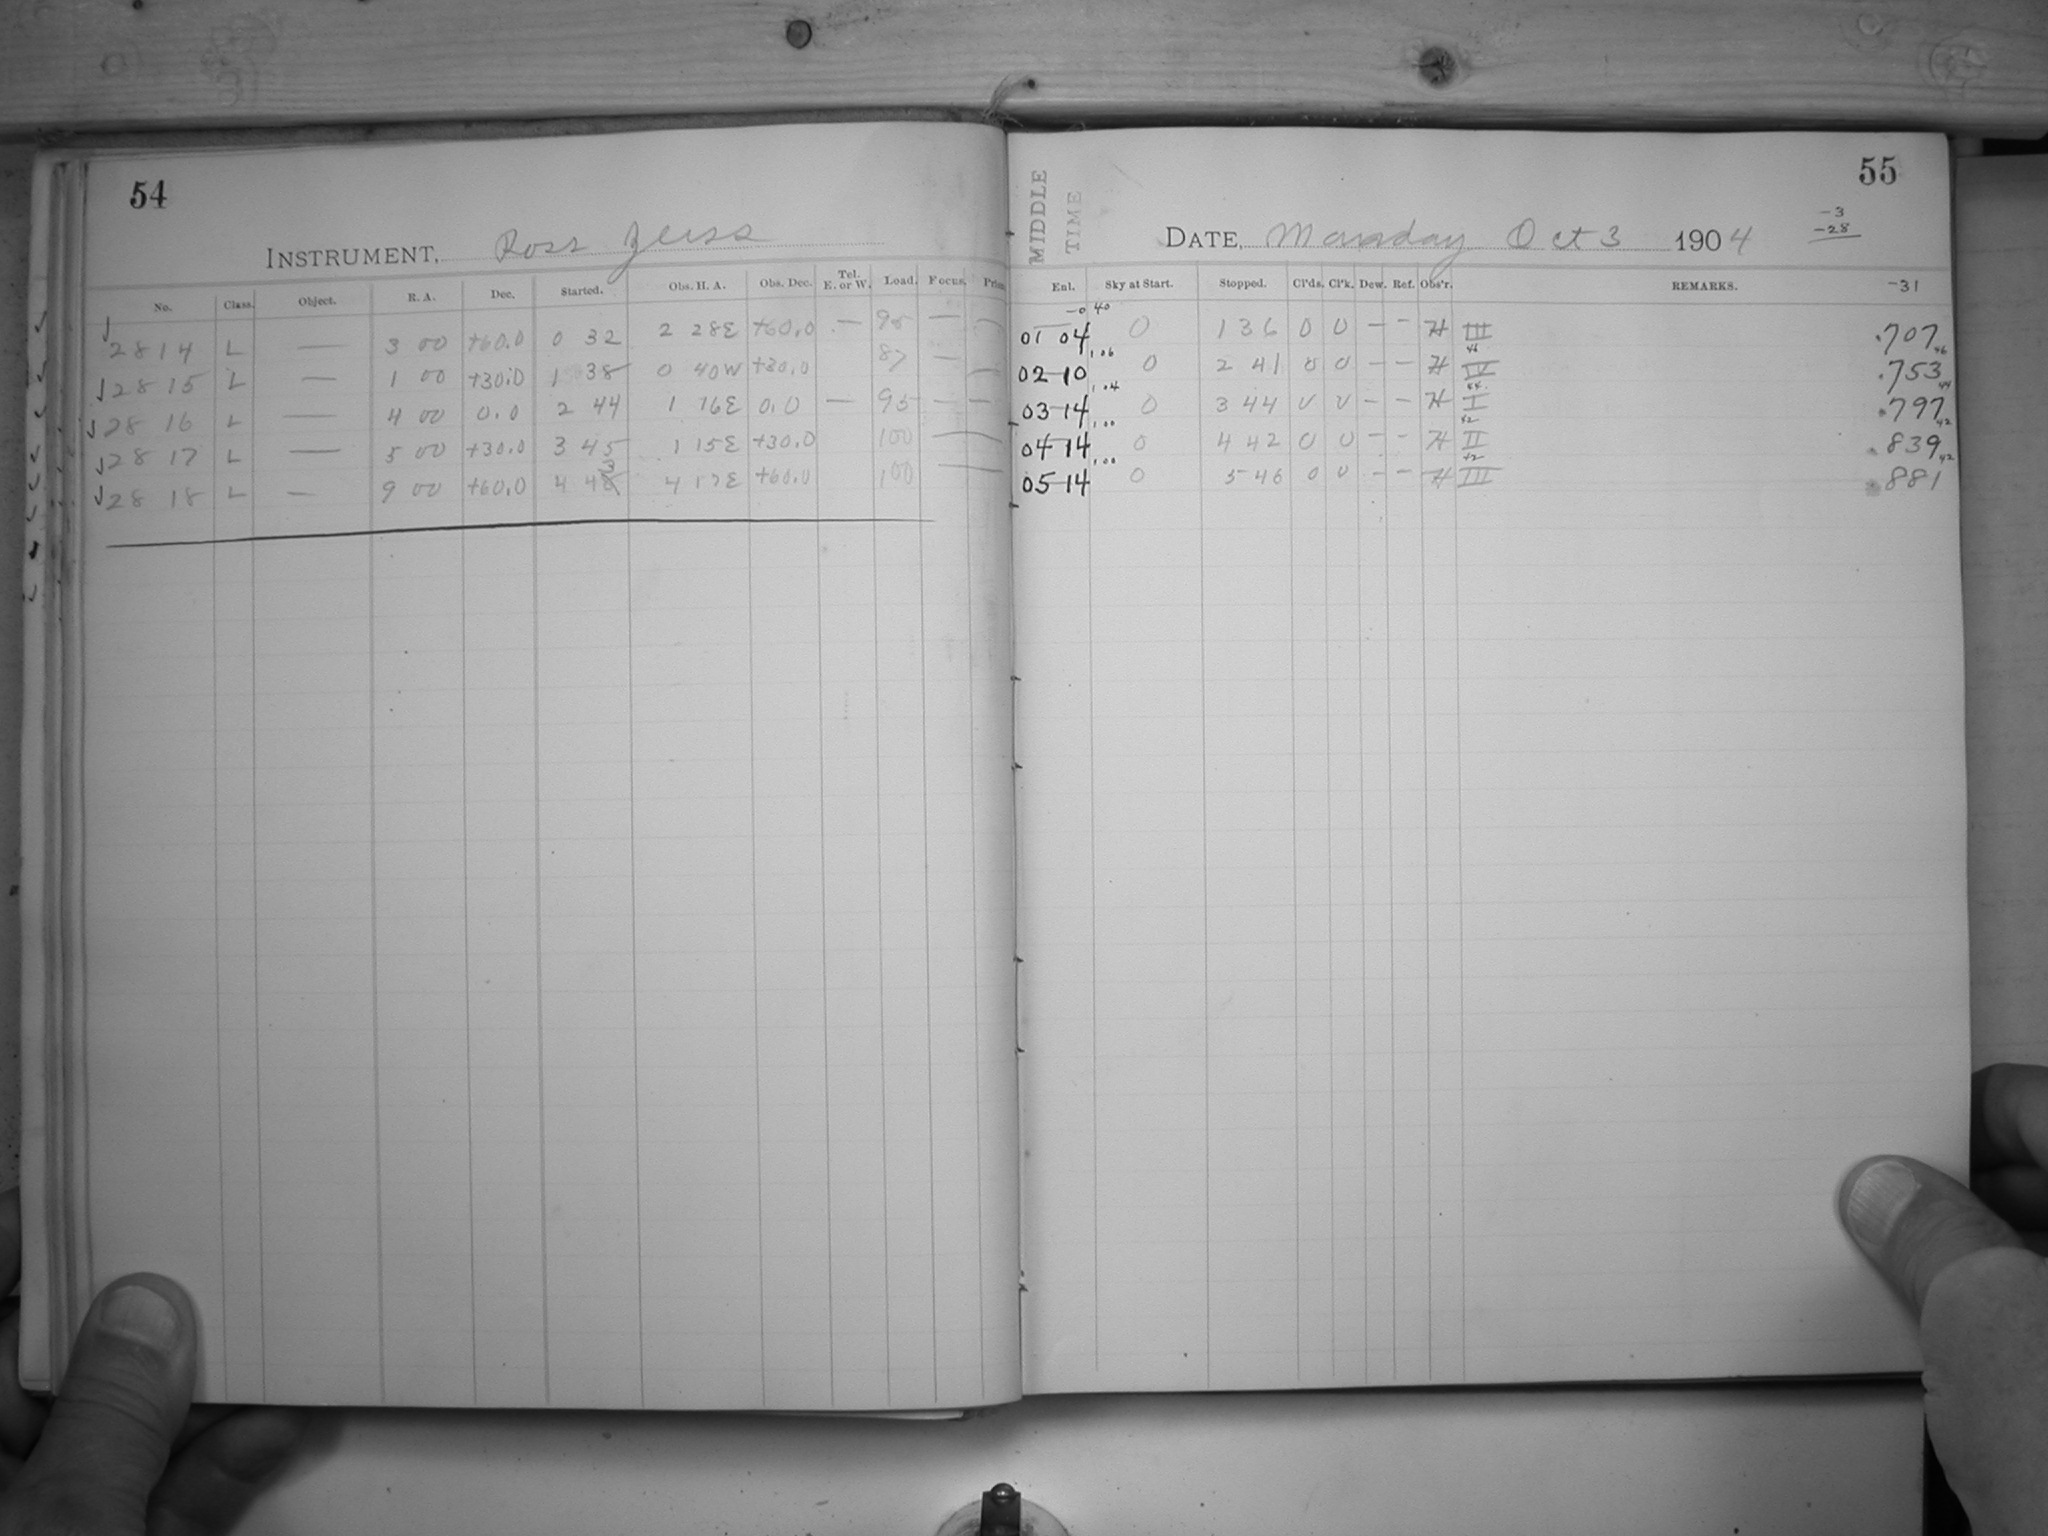 54
INSTRUMENT, Ross Zeiss
No. Class. Object. R. A. Dec. Started. Obs. H. A. Obs. Dec. Tel. E. or W. Load. Focus.
2814 L — 3 00 +60.0 0 32 2 28E +60.0 — 95 — —
2815 L — 1 00 +30.0 1 38 0 40W +30.0 87 — —
28 16 L — 4 00 0.0 2 44 1 16E 0.0 — 95 — —
28 17 L — 5 00 +30.0 3 45 1 15E +30.0 100 —
28 18 L — 9 00 +60.0 4 43 4 17E +60.0 100 —
55
MIDDLE TIME
DATE, Monday Oct 3 1904
-3
-28
-31
Enl. Sky at Start. Stopped. Cl'ds. Cl'k. Dew. Ref. Obs'r. REMARKS.
01 04 0 1 36 0 0 — — H III .707
46
02 10 1.06 0 2 41 0 0 — — H IV .753
44
03 14 1.04 0 3 44 0 0 — — H I .797
42
04 14 1.00 0 4 42 0 0 — — H II .839
42
05 14 1.00 0 5 46 0 0 — — H III .881